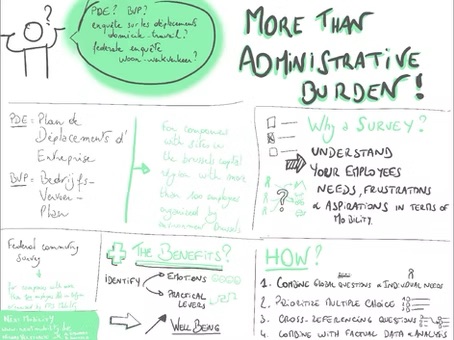 ?
PDE? BVP?
enquête sur les déplacements
domicile-travail?
federale enquête
woon-werkverkeer?
MORE THAN
ADMINISTRATIVE
BURDEN!
PDE = Plan de
Déplacements d'
Entreprise
BVP = Bedrijfs-
Vervoer-
Plan
For companies
with sites in
the brussels capital
region with more
than 100 employees
organised by
environment brussels
Why a SURVEY?
UNDERSTAND
YOUR EMPLOYEES
NEEDS, FRUSTRATIONS
& ASPIRATIONS IN TERMS OF
MOBILITY.
?
Federal commuting
survey
for companies with more
The BENEFITS?
IDENTIFY
EMOTIONS
PRACTICAL
LEVERS
WELL BEING
HOW?
1. COMBINE GLOBAL QUESTIONS & INDIVIDUAL NEEDS
2. PRIORITIZE MULTIPLE CHOICE
3. CROSS-REFERENCING QUESTIONS
4. COMBINE WITH FACTUAL DATA & ANALYSIS